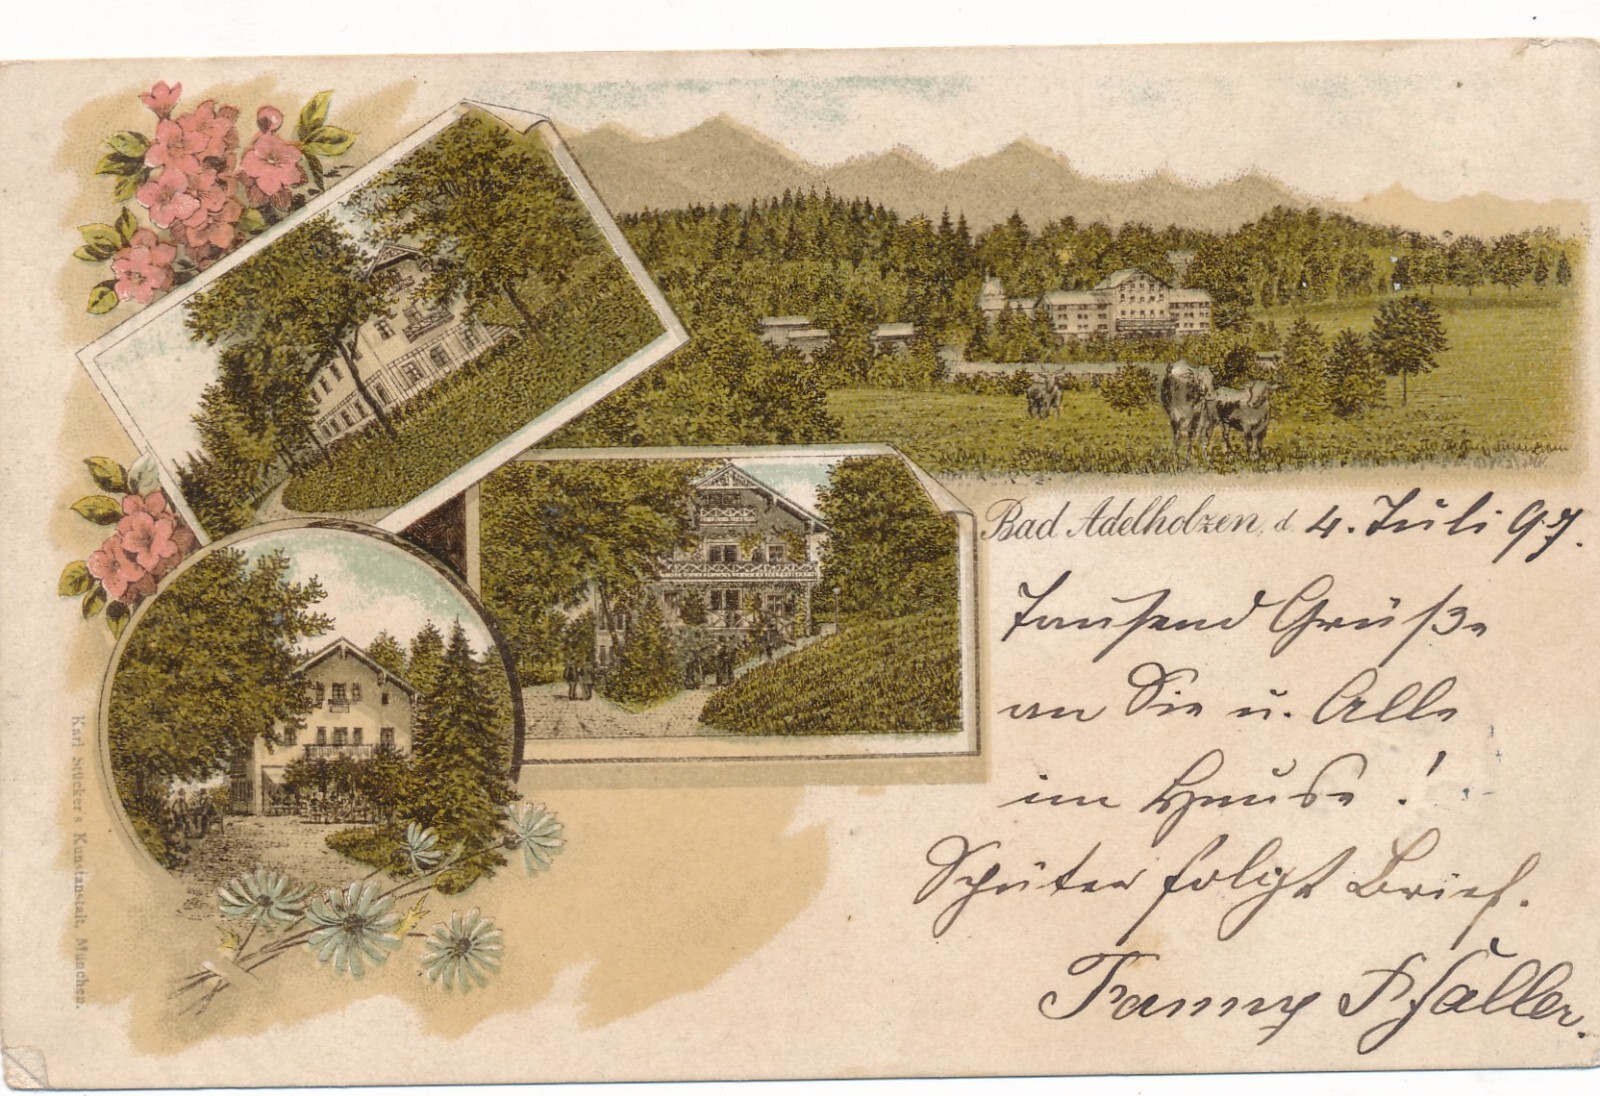 Bad Adelholzen, d. 4. Juli 97.
Tausend Grüße
an Sie u. Alle
im Hause!
Später folgt Brief.
Fanny Pfaller.
Karl Stücker's Kunstanstalt, München.